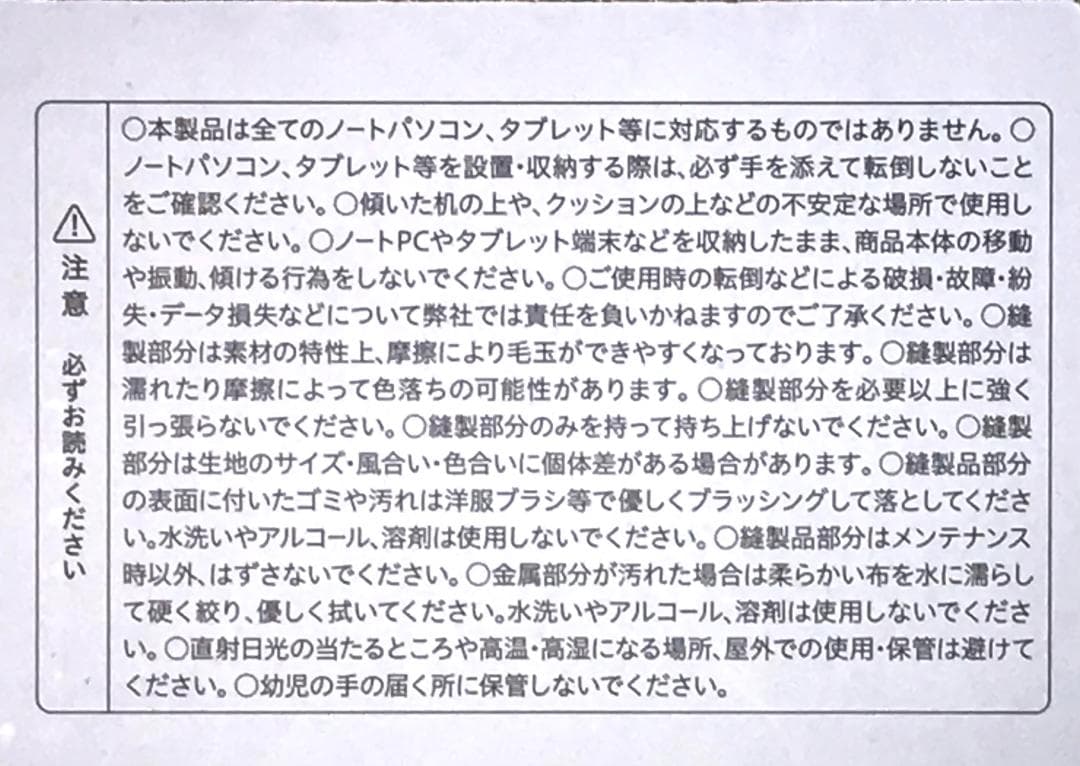 ⚠注意 必ずお読みください
○本製品は全てのノートパソコン、タブレット等に対応するものではありません。○
ノートパソコン、タブレット等を設置・収納する際は、必ず手を添えて転倒しないこと
をご確認ください。○傾いた机の上や、クッションの上などの不安定な場所で使用し
ないでください。○ノートPCやタブレット端末などを収納したまま、商品本体の移動
や振動、傾ける行為をしないでください。○ご使用時の転倒などによる破損・故障・紛
失・データ損失などについて弊社では責任を負いかねますのでご了承ください。○縫
製部分は素材の特性上、摩擦により毛玉ができやすくなっております。○縫製部分は
濡れたり摩擦によって色落ちの可能性があります。○縫製部分を必要以上に強く
引っ張らないでください。○縫製部分のみを持って持ち上げないでください。○縫製
部分は生地のサイズ・風合い・色合いに個体差がある場合があります。○縫製品部分
の表面に付いたゴミや汚れは洋服ブラシ等で優しくブラッシングして落としてくださ
い。水洗いやアルコール、溶剤は使用しないでください。○縫製品部分はメンテナンス
時以外、はずさないでください。○金属部分が汚れた場合は柔らかい布を水に濡らし
て硬く絞り、優しく拭いてください。水洗いやアルコール、溶剤は使用しないでくださ
い。○直射日光の当たるところや高温・高湿になる場所、屋外での使用・保管は避けて
ください。○幼児の手の届く所に保管しないでください。